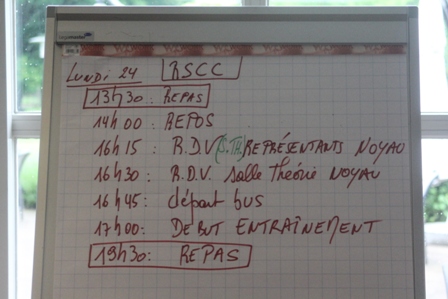 LUNDI 24 RSCC
13h30: REPAS
14h00: REPOS
16h15: R.D.V (S.TH) REPRÉSENTANTS NOYAU
16h30: R.D.V. salle théorie NOYAU
16h45: départ bus
17h00: DEBUT ENTRAÎNEMENT
19h30: REPAS